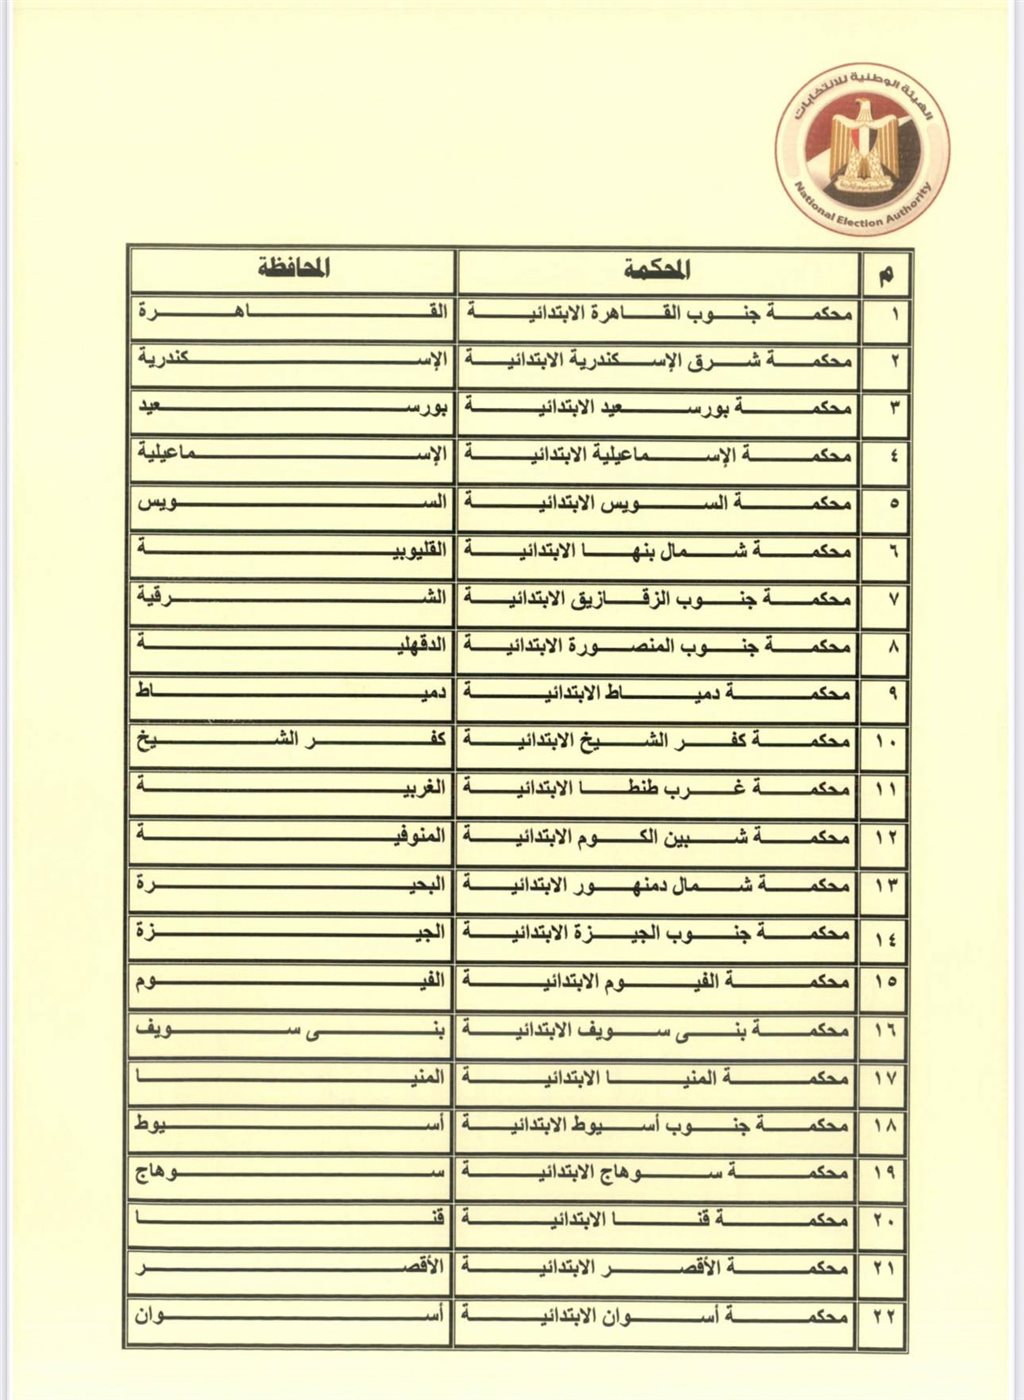 الهيئة الوطنية للانتخابات
National Election Authority
م المحكمة المحافظة
١ محكمة جنوب القاهرة الابتدائية القاهرة
٢ محكمة شرق الإسكندرية الابتدائية الإسكندرية
٣ محكمة بورسعيد الابتدائية بورسعيد
٤ محكمة الإسماعيلية الابتدائية الإسماعيلية
٥ محكمة السويس الابتدائية السويس
٦ محكمة شمال بنها الابتدائية القليوبية
٧ محكمة جنوب الزقازيق الابتدائية الشرقية
٨ محكمة جنوب المنصورة الابتدائية الدقهلية
٩ محكمة دمياط الابتدائية دمياط
١٠ محكمة كفر الشيخ الابتدائية كفر الشيخ
١١ محكمة غرب طنطا الابتدائية الغربية
١٢ محكمة شبين الكوم الابتدائية المنوفية
١٣ محكمة شمال دمنهور الابتدائية البحيرة
١٤ محكمة جنوب الجيزة الابتدائية الجيزة
١٥ محكمة الفيوم الابتدائية الفيوم
١٦ محكمة بنى سويف الابتدائية بنى سويف
١٧ محكمة المنيا الابتدائية المنيا
١٨ محكمة جنوب أسيوط الابتدائية أسيوط
١٩ محكمة سوهاج الابتدائية سوهاج
٢٠ محكمة قنا الابتدائية قنا
٢١ محكمة الأقصر الابتدائية الأقصر
٢٢ محكمة أسوان الابتدائية أسوان